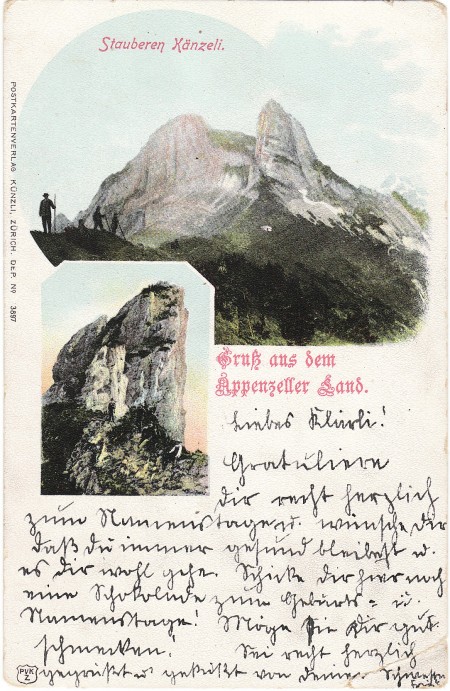 Stauberen Känzeli.
POSTKARTENVERLAG KÜNZLI, ZÜRICH. DEP. No 3897
Gruß aus dem
Appenzeller Land.
Liebes Klärli!
Gratuliere
dir recht herzlich
zum Namenstage u. wünsche dir
daß du immer gesund bleibest u.
es dir wohl gehe. Schicke dir hier noch
eine Schokolade zum Geburts- u.
Namenstage! Möge sie dir gut
schmecken. Sei recht herzlich
gegrüßt u. geküßt von deiner Schwester
PVK
Z